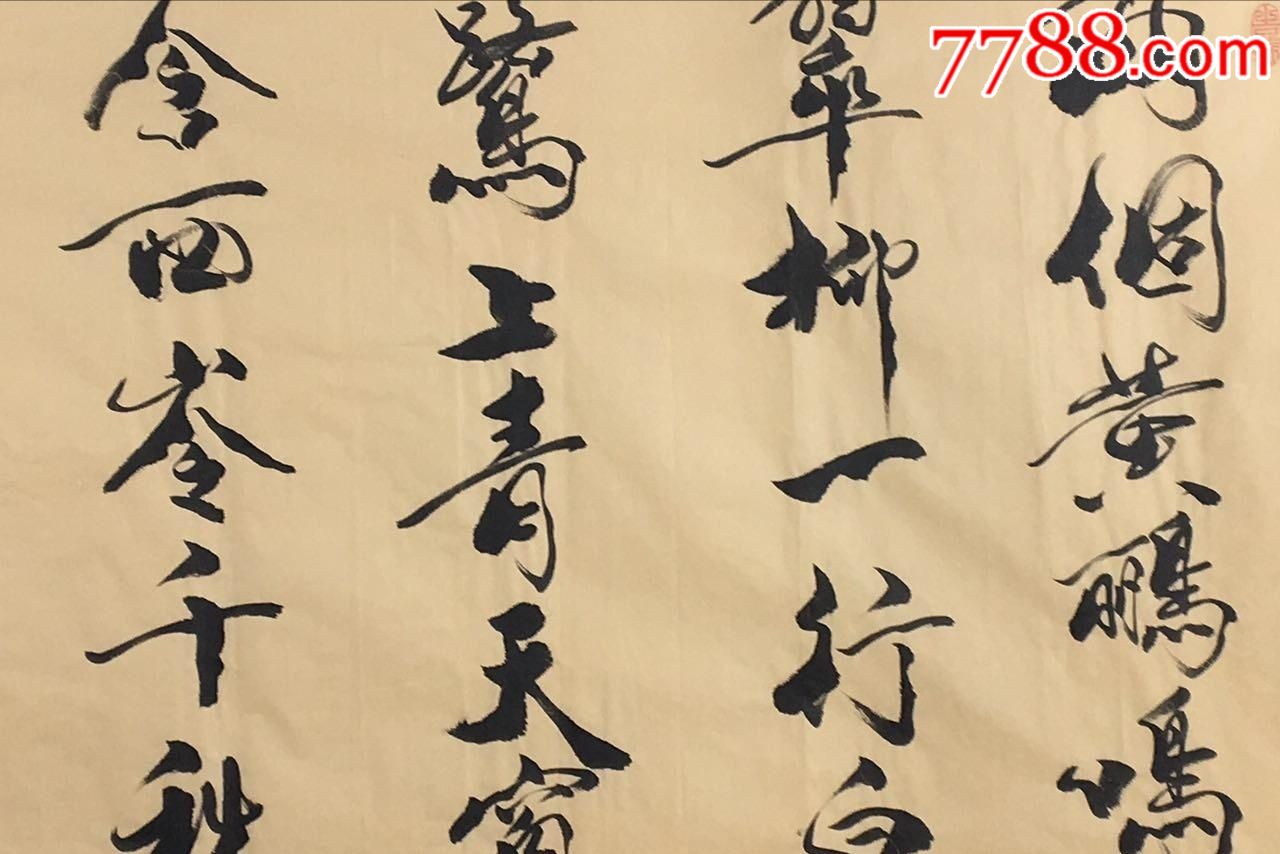 两個黄鸝鳴
翠柳一行白
鷺上青天窗
含西岺千秋
7788.com